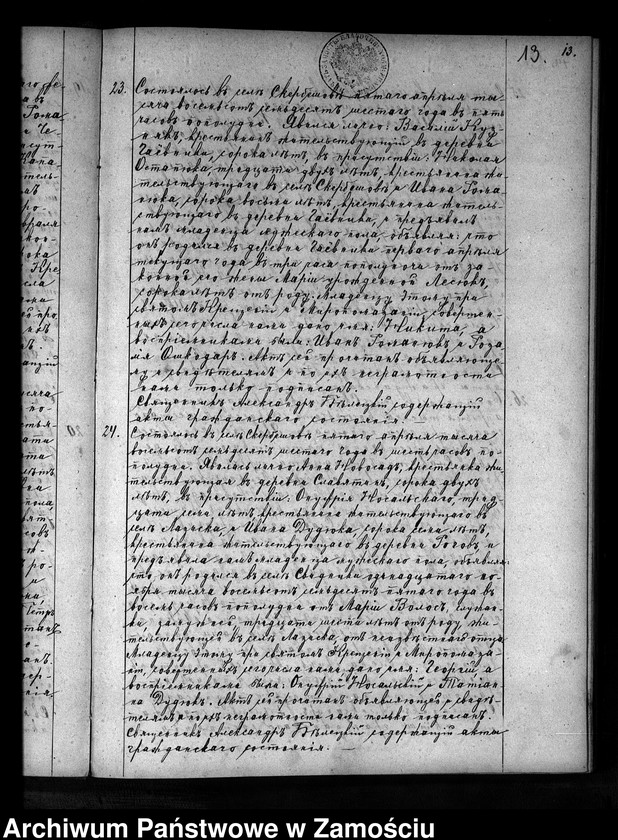 13. 13.
23. Состоялось въ селѣ Скербешовѣ пятаго апрѣля ты-
сяча восемьсотъ семьдесятъ шестаго года въ пять
часовъ пополудни. Явился лично: Василій Куз-
някъ, крестьянинъ жительствующій въ деревни
Гаевники, сорока лѣтъ, въ присутствіи: Николая
Остапюка, тридцати двухъ лѣтъ, крестьянина жи-
тельствующаго въ селѣ Скербешовѣ и Ивана Гома-
нюка, сорока восьми лѣтъ, крестьянина житель-
ствующаго въ деревни Гаевники, и предъявилъ
намъ младенца мужескаго пола, объявляя: что
онъ родился въ деревни Гаевники перваго апрѣля
текущаго года въ три часа пополуночи отъ за
конной его жены Маріи урожденной Лесюкъ,
сорока лѣтъ отъ роду. Младенцу этому при
святомъ Крещеніи и миропомазаніи, совершен-
ныхъ сегочисла нами дано имя: Никита, а
воспріемниками были: Иванъ Гоманюкъ и Роза-
лія Ошкодаръ. Актъ сей прочитанъ объявляюще-
му и свидѣтелямъ и по ихъ неграмотности
нами только подписанъ.
Священникъ Александръ Бѣлецкій содержащій
акты гражданскаго состоянія. —
24. Состоялось въ селѣ Скербешовѣ пятаго апрѣля тысяча
восемьсотъ семьдесятъ шестаго года въ шесть часовъ по-
полудни. Явилась лично Анна Новосадъ, крестьянка жи-
тельствующая въ деревни Славятинъ, сорока двухъ
лѣтъ, въ присутствіи: Онуфрія Носальскаго, трид-
цати семи лѣтъ крестьянина жительствующаго въ
селѣ Лазиска, и Ивана Дудюка, сорока семи лѣтъ,
крестьянина жительствующаго въ деревни Гоговъ и
предъявила намъ младенца мужескаго пола, объявляя:
что онъ родился въ селѣ Свидники одинадцатаго но-
ября тысяча восемьсотъ семьдесятъ пятаго года въ
восемь часовъ пополудни отъ Маріи Волосъ, служан-
ки, замужей, тридцати шести лѣтъ отъ роду жи-
тельствующей въ селѣ Лазиска, отъ неизвѣстнаго отца
Младенцу этому при святомъ Крещеніи и Миропомаза-
ніи, совершенныхъ сегочисла нами дано имя: Георгій, а
воспріемниками были: Онуфрій Носальскій и Татіан-
на Дудюкъ. Актъ сей прочитанъ объявляющей и свидѣ-
телямъ и по ихъ неграмотности нами только подписанъ.
Священникъ Александръ Бѣлецкій содержащій акты
гражданскаго состоянія. —
Archiwum Państwowe w Zamościu